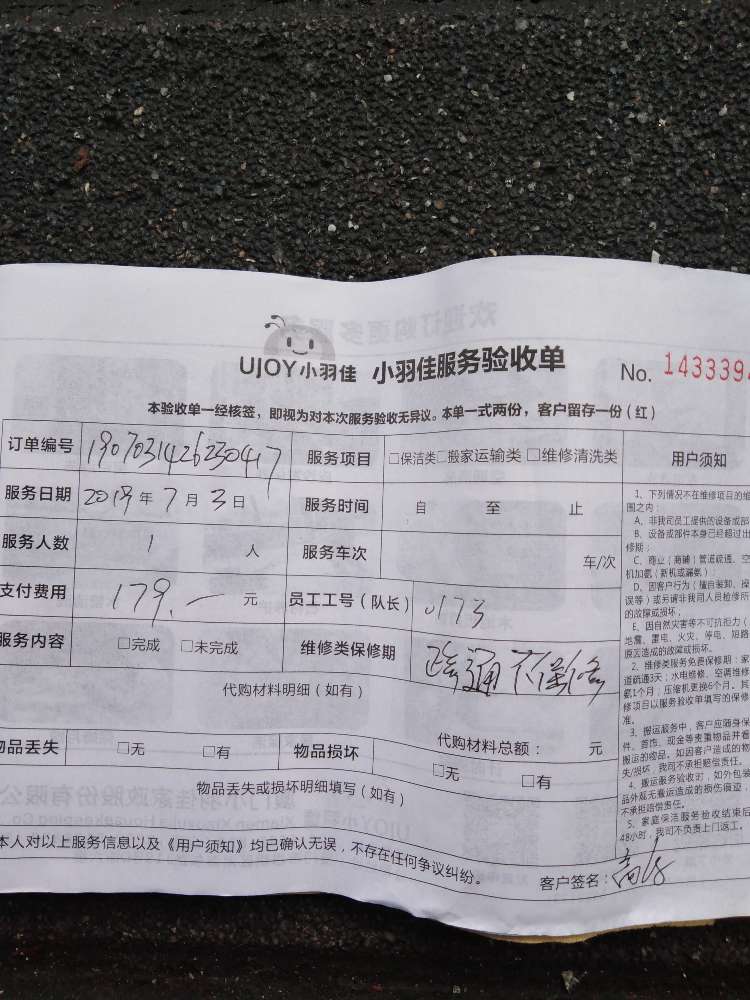 UJOY小羽佳 小羽佳服务验收单 No. 1433394
本验收单一经核签，即视为对本次服务验收无异议。本单一式两份，客户留存一份（红）
订单编号 190703142623047 服务项目 □保洁类□搬家运输类 □维修清洗类 用户须知
服务日期 2019年7月3日 服务时间 自 至 止
服务人数 1 人 服务车次 车/次
支付费用 179.— 元 员工工号（队长） 0173
服务内容 □完成 □未完成 维修类保修期 疏通不保修
代购材料明细（如有）
代购材料总额： 元
物品丢失 □无 □有 物品损坏 □无 □有
物品丢失或损坏明细填写（如有）
本人对以上服务信息以及《用户须知》均已确认无误，不存在任何争议纠纷。
客户签名：
1、下列情况不在维修项目的维
围之内：
A、非我司员工提供的设备或部
B、设备或部件本身已经超过出
修期；
C、商业（商铺）管道疏通、空
机加氨（新机或漏氨）
D、因客户行为（擅自装卸、操
误等）或另请非我司人员检修所
的故障或损坏，
E、因自然灾害等不可抗拒力（
地震、雷电、火灾、停电、短路
原因造成的故障或损坏。
2、维修类服务免费保修期：家
道疏通3天；水电维修、空调维修
氨1个月；压缩机更换6个月。其
修项目以服务验收单填写的保修
准。
3、搬运服务中，客户应随身保
件、首饰、现金等贵重物品并看
搬运的物品。如因客户造成的物
失/损坏，我司不承担赔偿责任。
4、搬运服务验收时，如外包装
品外观无搬运造成的损伤痕迹，
不承担赔偿责任。
5、家庭保洁服务验收结束后
48小时，我司不负责上门返工。